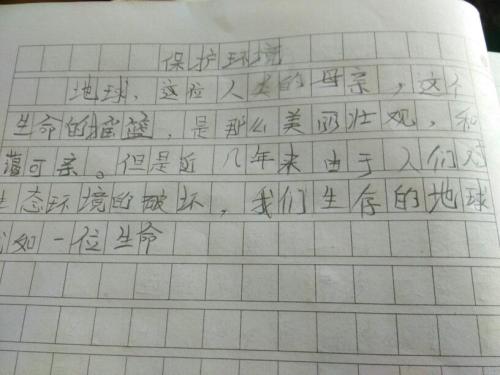 保护环境
地球，这位人类的母亲，这个
生命的摇篮，是那么美丽壮观，和
蔼可亲。但是近几年来由于人们对
生态环境的破坏，我们生存的地球
如一位生命